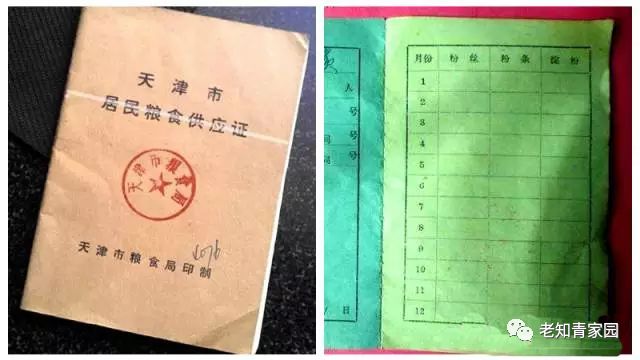 天津市
居民粮食供应证
天津市粮食局
天津市粮食局印制
人
号
号
日
月份 粉丝 粉条 淀粉
1
2
3
4
5
6
7
8
9
10
11
12
老知青家园